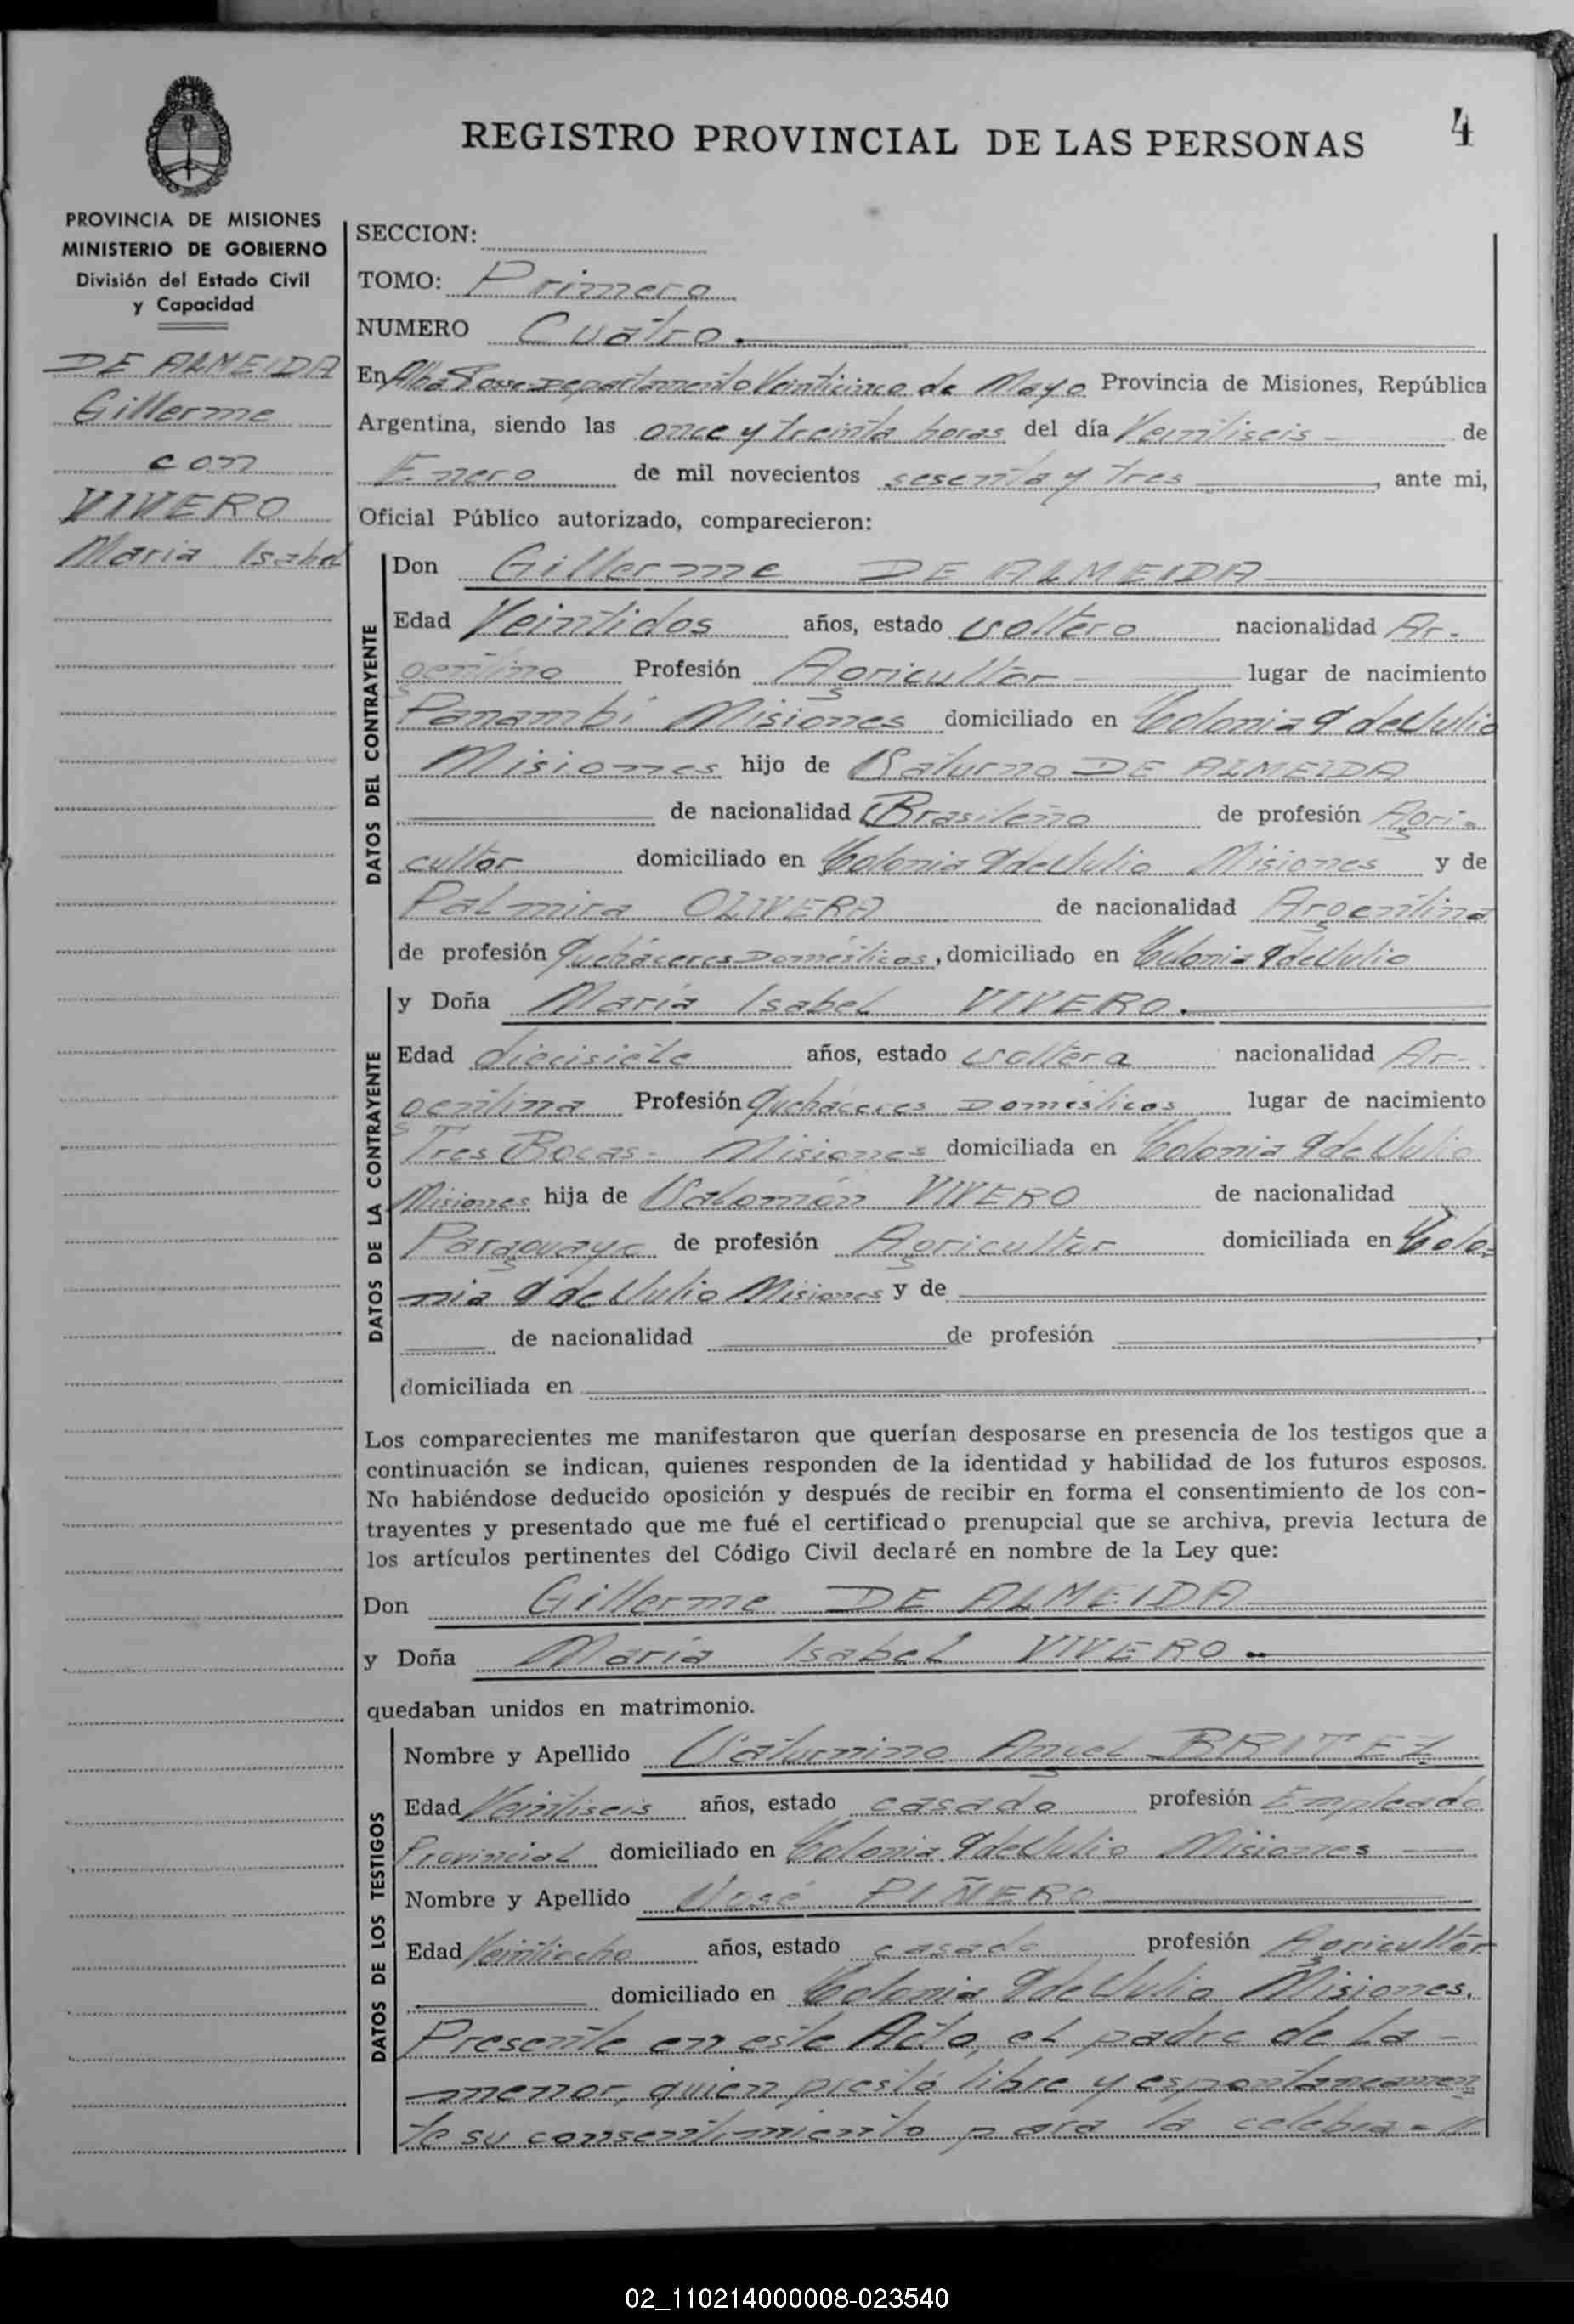 4
REGISTRO PROVINCIAL DE LAS PERSONAS
PROVINCIA DE MISIONES
MINISTERIO DE GOBIERNO
División del Estado Civil
y Capacidad
DE ALMEIDA
Gillerme
con
VIVERO
Maria Isabel
SECCION:
TOMO: Primero
NUMERO Cuatro.
En Alba Posse Departamento Veinticinco de Mayo Provincia de Misiones, República
Argentina, siendo las once y treinta horas del día Veintiseis de
Enero de mil novecientos sesenta y tres, ante mi,
Oficial Público autorizado, comparecieron:
DATOS DEL CONTRAYENTE
Don Gillerme DE ALMEIDA
Edad Veintidos años, estado soltero nacionalidad Ar-
gentino Profesión Agricultor lugar de nacimiento
Panambí Misiones domiciliado en Colonia 9 de Julio
Misiones hijo de Saturno DE ALMEIDA
de nacionalidad Brasileño de profesión Agri-
cultor domiciliado en Colonia 9 de Julio Misiones y de
Palmira OLIVERA de nacionalidad Argentina
de profesión Quehaceres Domésticos, domiciliado en Colonia 9 de Julio
DATOS DE LA CONTRAYENTE
y Doña María Isabel VIVERO.
Edad diecisiete años, estado soltera nacionalidad Ar-
gentina Profesión Quehaceres Domésticos lugar de nacimiento
Tres Bocas - Misiones domiciliada en Colonia 9 de Julio
Misiones hija de Salomón VIVERO de nacionalidad
Paraguayo de profesión Agricultor domiciliada en Colo-
nia 9 de Julio Misiones y de
de nacionalidad de profesión ,
domiciliada en
Los comparecientes me manifestaron que querían desposarse en presencia de los testigos que a
continuación se indican, quienes responden de la identidad y habilidad de los futuros esposos.
No habiéndose deducido oposición y después de recibir en forma el consentimiento de los con-
trayentes y presentado que me fué el certificado prenupcial que se archiva, previa lectura de
los artículos pertinentes del Código Civil declaré en nombre de la Ley que:
Don Gillerme DE ALMEIDA
y Doña María Isabel VIVERO
quedaban unidos en matrimonio.
DATOS DE LOS TESTIGOS
Nombre y Apellido Saturnino Angel BRITEZ
Edad Veintiseis años, estado casado profesión Empleado
Provincial domiciliado en Colonia 9 de Julio Misiones
Nombre y Apellido José PIÑERO
Edad Veintiocho años, estado casado profesión Agricultor
domiciliado en Colonia 9 de Julio Misiones.
Presente en este Acto, el padre de la -
menor, quien prestó libre y espontaneamen
te su consentimiento para la celebra-//
02_110214000008-023540